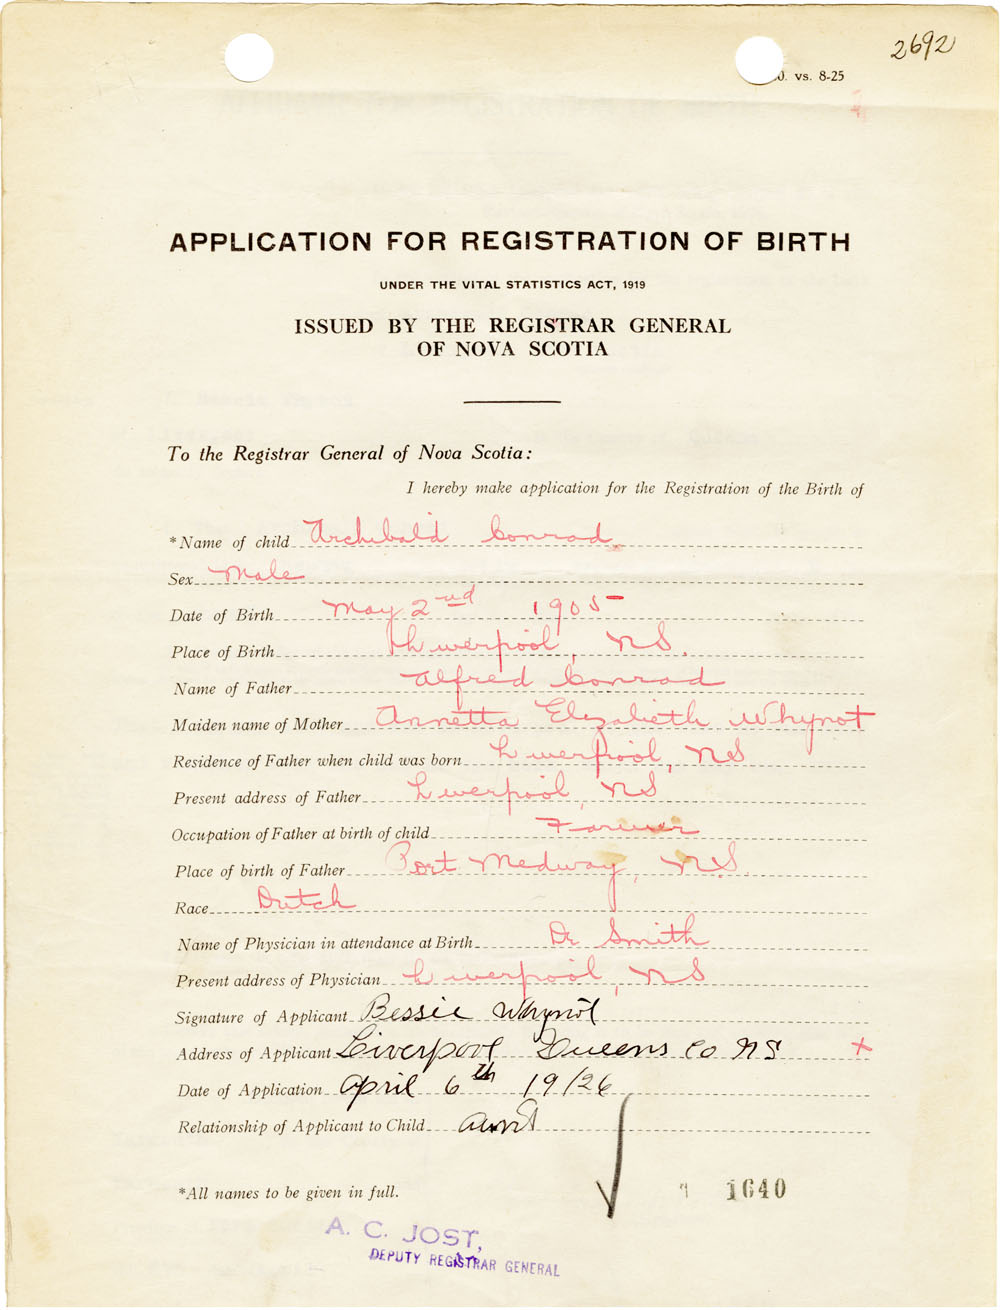 2692
0. vs. 8-25
APPLICATION FOR REGISTRATION OF BIRTH
UNDER THE VITAL STATISTICS ACT, 1919
ISSUED BY THE REGISTRAR GENERAL
OF NOVA SCOTIA
To the Registrar General of Nova Scotia:
I hereby make application for the Registration of the Birth of
*Name of child Archibald Conrad
Sex Male
Date of Birth May 2nd 1905
Place of Birth Liverpool, NS.
Name of Father Alfred Conrad
Maiden name of Mother Annetta Elizabeth Whynot
Residence of Father when child was born Liverpool, NS
Present address of Father Liverpool, NS
Occupation of Father at birth of child Farmer
Place of birth of Father Port Medway, N.S.
Race Dutch
Name of Physician in attendance at Birth Dr Smith
Present address of Physician Liverpool, NS
Signature of Applicant Bessie Whynot
Address of Applicant Liverpool Queens Co NS x
Date of Application April 6th 19/26
Relationship of Applicant to Child aunt
*All names to be given in full.
1640
A. C. JOST,
DEPUTY REGISTRAR GENERAL